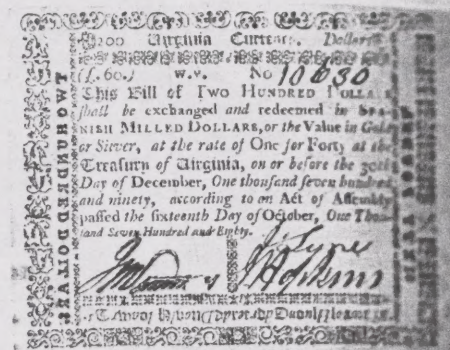 Virginia Currency. Dollars
(£.60.) W.V. No 10630
This Bill of TWO HUNDRED DOLLARS
shall be exchanged and redeemed in SPA-
NISH MILLED DOLLARS, or the Value in Gold
or Silver, at the rate of One for Forty at the
Treasury of Virginia, on or before the 30th
Day of December, One thousand seven hundred
and ninety, according to an Act of Assembly
passed the sixteenth Day of October, One Thou-
sand Seven Hundred and Eighty.
J. Tyne
J Hopkins
TWO HUNDRED DOLLARS